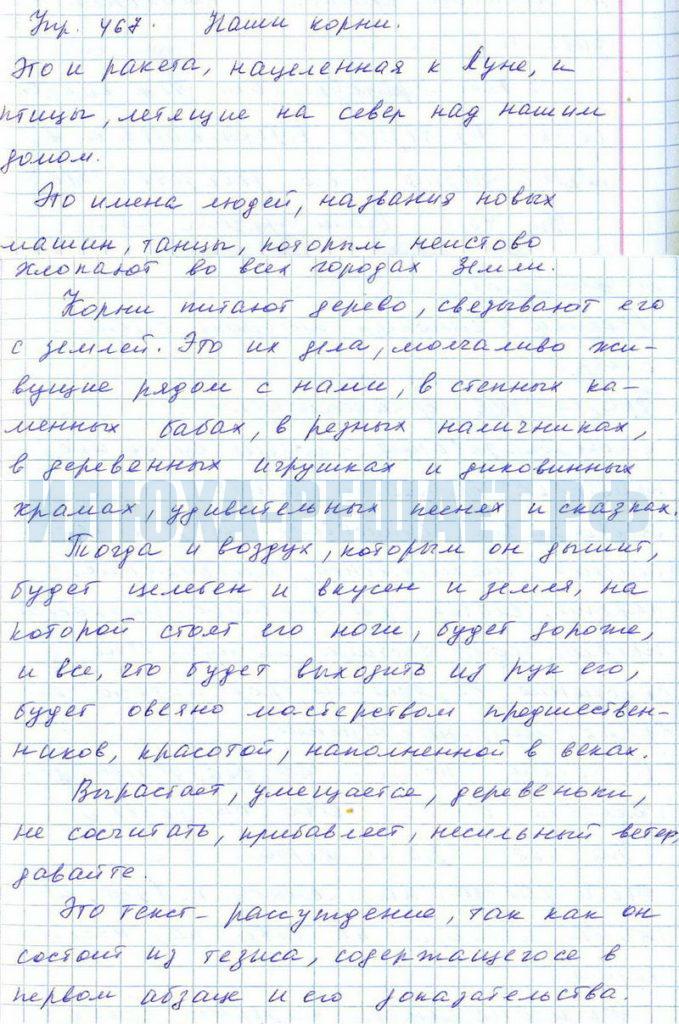 Упр. 467. Наши корни.
Это и ракета, нацеленная к Луне, и
птицы, летящие на север над нашим
домом.
Это имена людей, названия новых
машин, танцы, которым неистово
хлопают во всех городах Земли.
Корни питают дерево, связывают его
с землей. Это их дела, молчаливо жи-
вущие рядом с нами, в степных ка-
менных бабах, в резных наличниках,
в деревенных игрушках и диковинных
храмах, удивительных песнях и сказках.
ИПОХА-РЕШАЕТ.РФ
Тогда и воздух, которым он дышит,
будет целебен и вкусен и земля, на
которой стоят его ноги, будет дороже,
и все, что будет выходить из рук его,
будет овеяно мастерством предшествен-
ников, красотой, наполненной в веках.
Вырастает, умещается, деревеньки,
не сосчитать, прибавляет, несильный ветер,
давайте.
Это текст-рассуждение, так как он
состоит из тезиса, содержащегося в
первом абзаце и его доказательства.